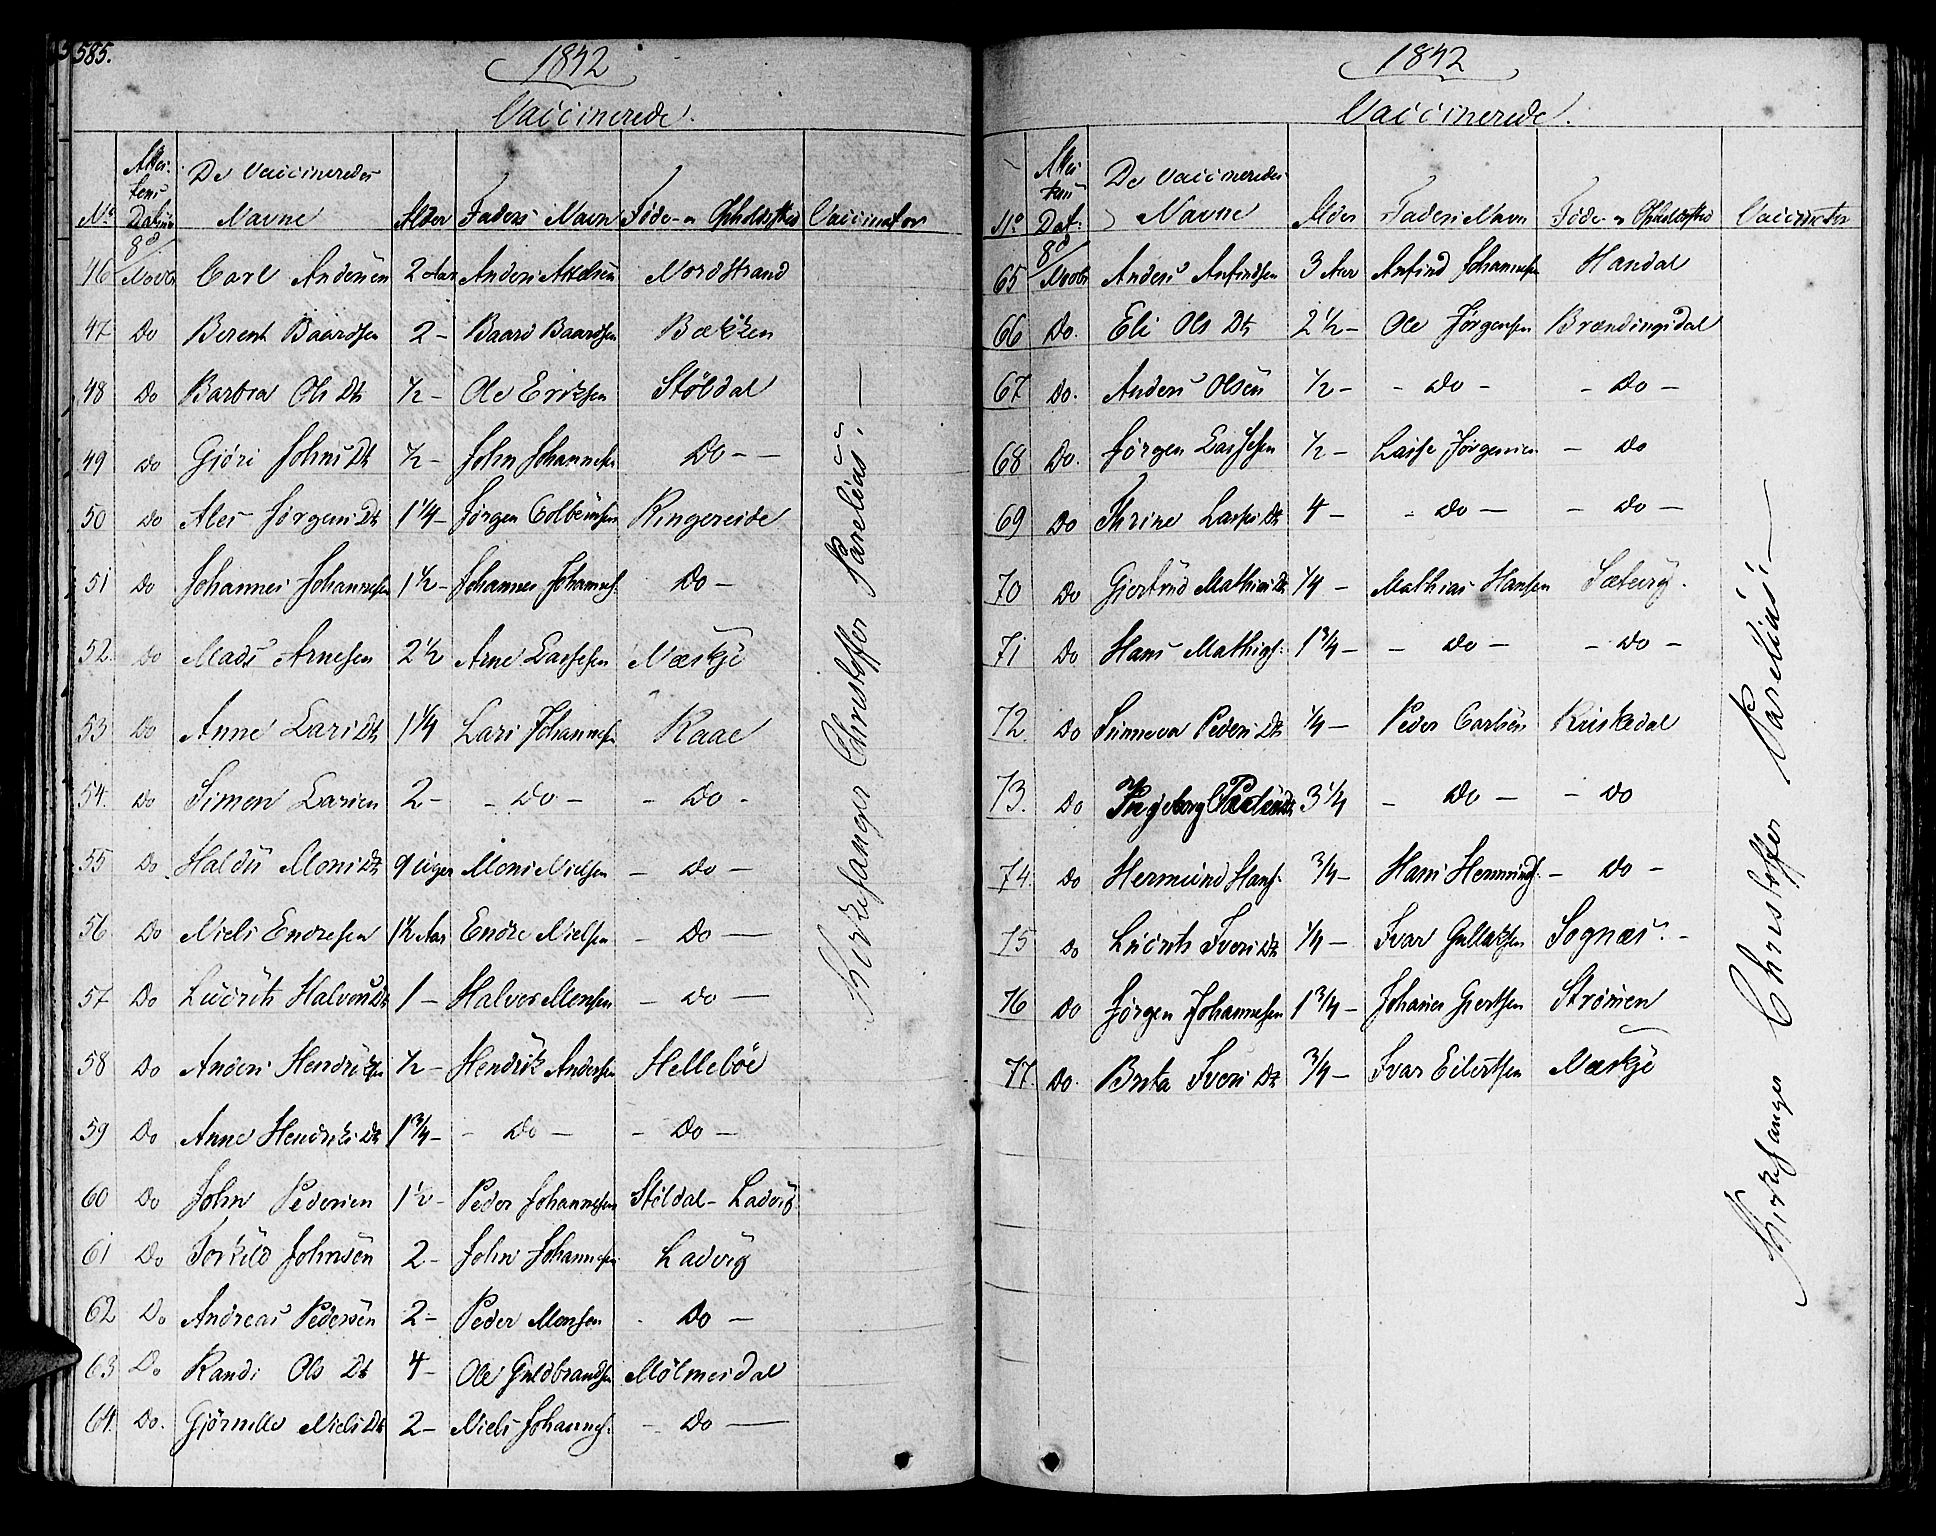 585.
1842
Vaccinerede.
No Attestens Datum De Vaccineredes Navne Alder Faders Navn Føde- og Opholdssted Vaccinator
46 8d/Novbr Carl Andersen 2 Aar Anders Axelsen Nordstrand
47 Do Berent Baardsen 2 - Baard Baardsen Bækken
48 Do Barbra Ols Dtr 1/2 - Ole Eriksen Stöldal
49 Do Gjöri Johns Dtr 1/2 - John Johannesen Do - -
50 Do Ales Jörgens Dtr 1 1/4 - Jörgen Colbensen Ringereide
51 Do Johannes Johannesen 1 1/2 - Johannes Johannes. Do -
52. Do Mads Arnesen 2 1/2 Arne Lassesen Næskje
53 Do Anne Lars Dtr 1 1/4 Lars Johannesen Raae
54. Do Simon Larsen 2 - - Do - - Do -
55 Do Haldis Mons Dtr 9 Uger Mons Nielsen - Do -
56 Do Niels Endresen 1 1/2 Aar Endre Nielsen - Do -
57 Do Lüdrits Halvors Dtr 1 - Halvor Monsen - Do -
58 Do Anders Hendriksen 1/2 - Hendrik Andersen Helleböe
59 Do Anne Hendriks Dtr 1 3/4 - - Do - - Do -
60 Do John Pedersen 1 1/2 - Peder Johannesen Stöldal - Ladvig
61 Do Torkild Johnsen 2 - John Johannesen Ladvig
62 Do Andreas Pedersen 2 - Peder Monsen - Do -
63 Do Randi Ols Dtr 4 - Ole Guldbrandsen Mölmesdal
64. Do. Gjörnille Niels Dtr 2 - Niels Johannes. - Do -
Kirkesanger Christoffer Parelius. -
1842
Vaccinerede.
No Attestens Dat: De Vaccineredes Navne Alder Faders Navn Føde- og Opholdssted Vaccinator
65 8d/Novbr Anders Anfindsen 3 Aar Anfind Johannesen Handal
66 Do. Eli Ols Dtr 2 1/2 - Ole Jörgensen Brændingsdal
67 Do. Anders Olsen 1/2 - - Do - - Do -
68 Do. Jörgen Lassesen 1/2 - Lasse Jörgensen - Do
69 Do Thrine Lasses Dtr 4 - - Do - - Do -
70 Do Giertrud Mathias Dtr 1/4 - Mathias Hansen Sætevig.
71 Do Hans Mathias: 1 3/4 - - Do - - Do -
72 Do Sünneva Peders Dtr 1/4 - Peder Carlsen Kriskedal
73. Do Ingeborg 3 1/2 - Do - - Do
74 Do Hermünd Hans. 3/4 - Hans Hermünds. - Do -
75 Do Lüdrits Ivers Dtr 1/4 - Ivar Gullaksen Sognæs. -
76 Do Jörgen Johannesen 1 3/4 - Johanes Giertsen Strömen
77 Do. Brita Ivers Dtr 3/4 - Ivar Eilertsen Næskje
Kirkesanger Christoffer Parelius. -